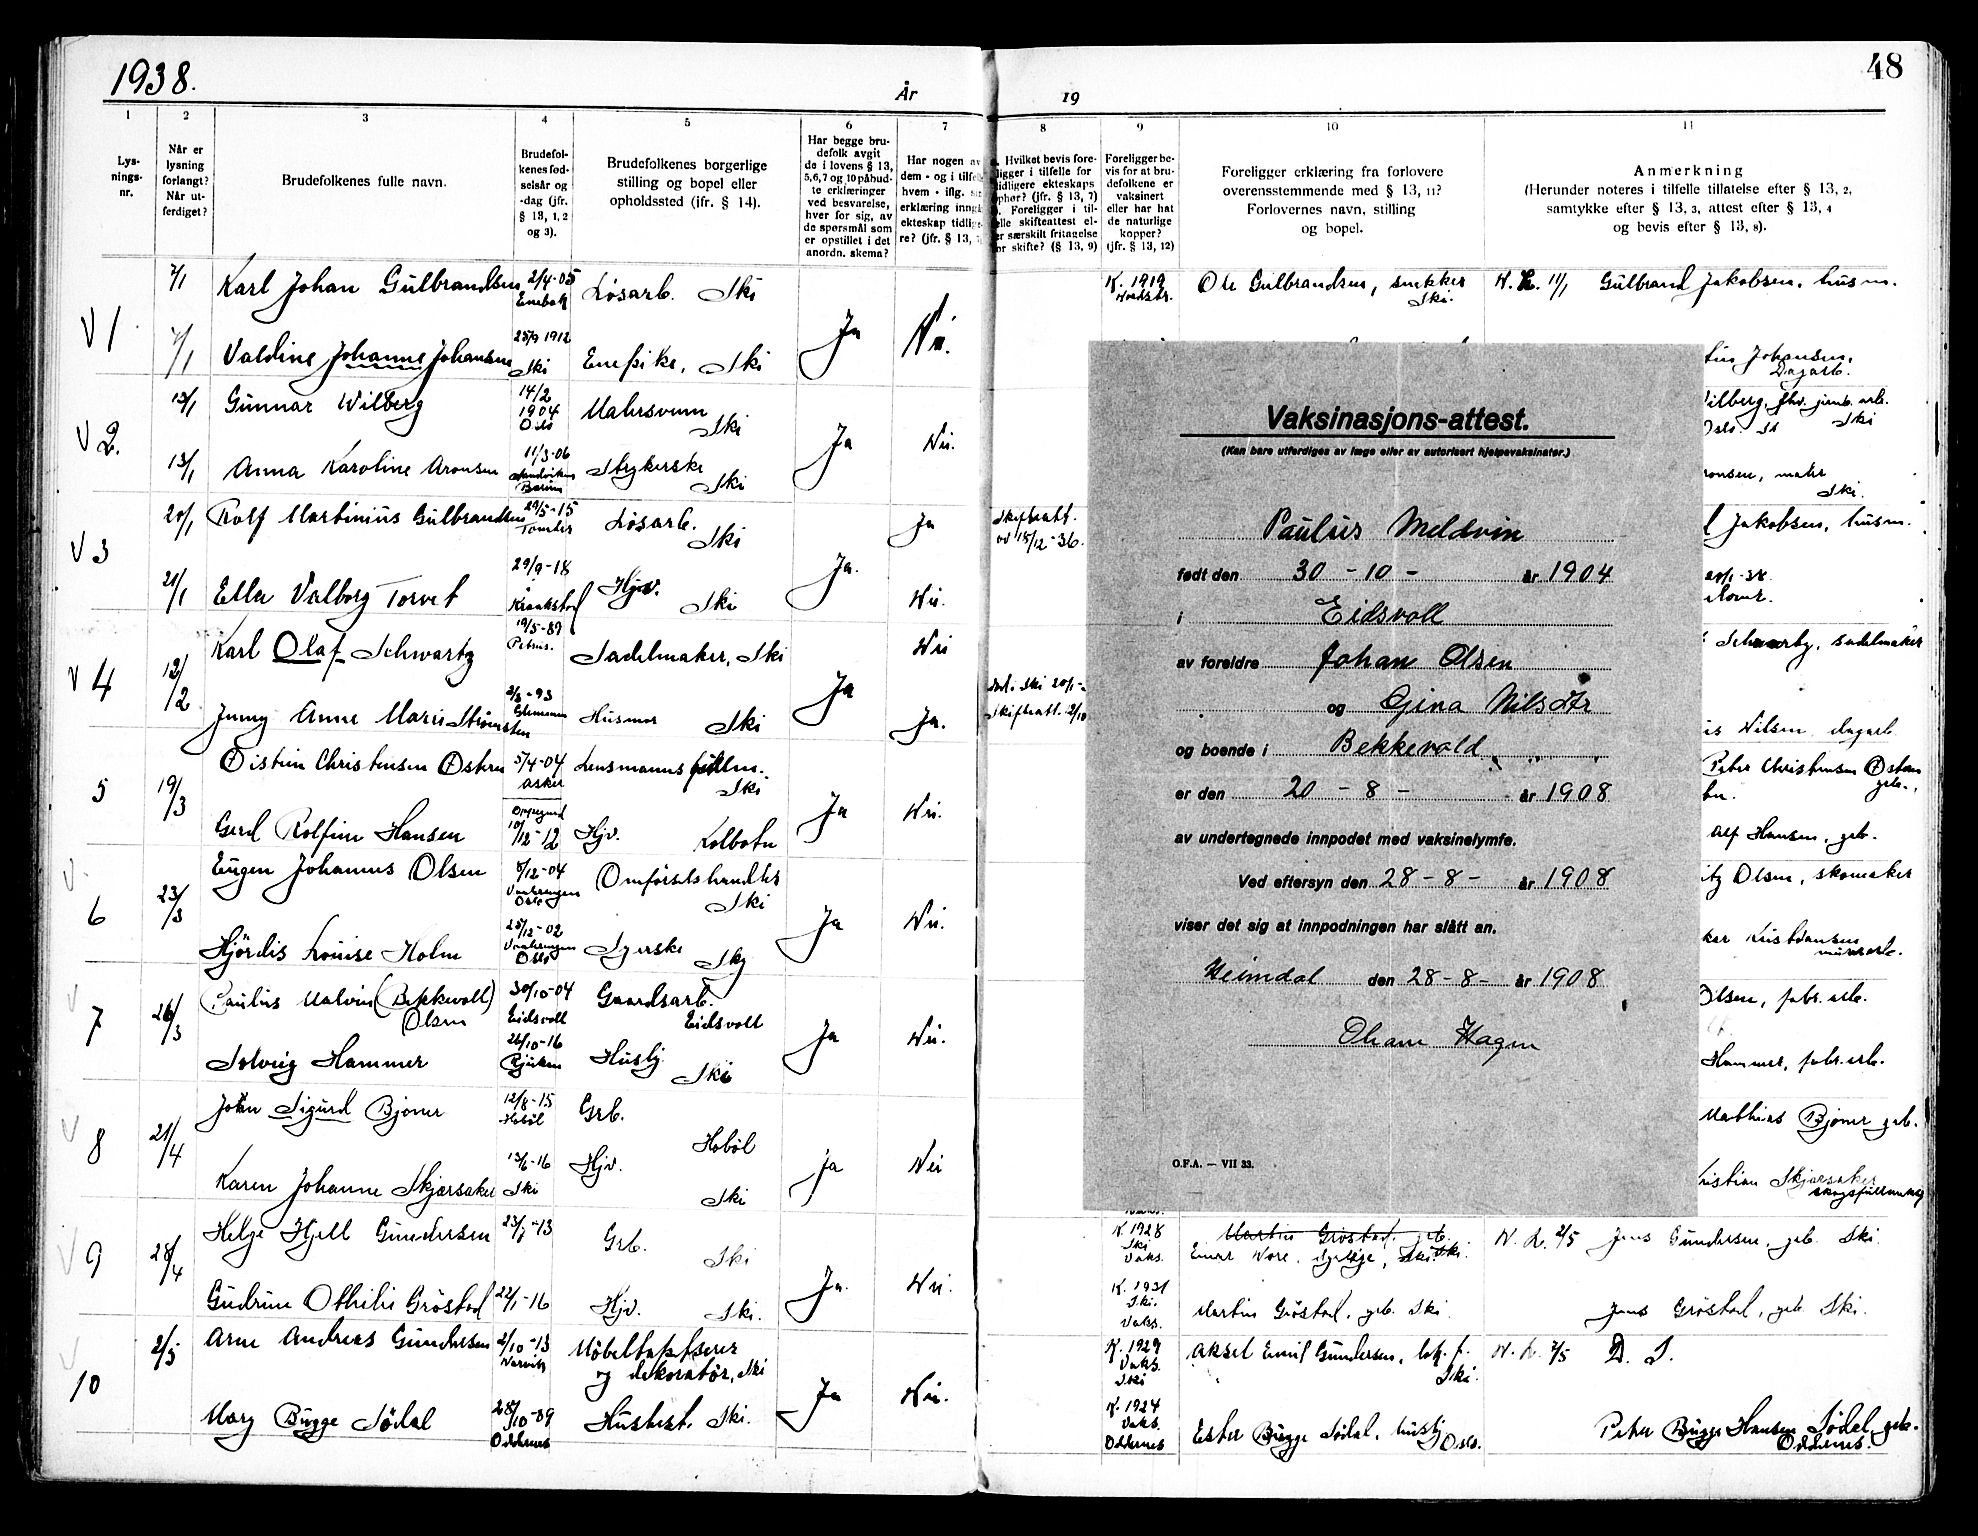 1938.
År
19
48
1
2
3
4
5
6
7
8
9
10
11
Lys-
nings-
nr.
Når er
lysning
forlangt?
Når ut-
ferdiget?
Brudefolkenes fulle navn.
Brudefol-
kenes fød-
selsår og
-dag (jfr.
§ 13, 1, 2
og 3).
Brudefolkenes borgerlige
stilling og bopel eller
opholdssted (jfr. § 14).
Har begge bru-
defolk avgit
de i lovens § 13,
5,6,7 og 10 påbud-
te erklæringer
ved besvarelse,
hver for sig, av
de spørsmål som
er opstillet i det
anordn. skema?
Har nogen av
dem - og i tilfe
hvem - iflg. si
erklæring inng
ekteskap tidlig
re? (jfr. § 13,
Hvilket bevis fore-
ligger i tilfelle for
tidligere ekteskaps
ophør? (jfr. § 13, 7)
Foreligger i til-
elle skifteattest el-
er særskilt fritagelse
or skifte? (§ 13, 9)
Foreligger be-
vis for at bru-
defolkene er
vaksinert
eller har hat
de naturlige
kopper?
(jfr. § 13, 12)
Foreligger erklæring fra forlovere
overensstemmende med § 13, 11?
Forlovernes navn, stilling
og bopel.
Anmerkning
(Herunder noteres i tilfelle tillatelse efter § 13, 2,
samtykke efter § 13, 3, attest efter § 13, 4
og bevis efter § 13, 8).
V 1
7/1 Karl Johan Gulbrandsen 2/4-05 Enebak Løsarb. Ski
K. 1919 Ole Gulbrandsen, snekker Ski. 11/1 Gulbrand Jakobsen, husm.
7/1 Valdine Johanne Johansen 25/9 1912 Ski Ski Ja Nei.
Johansen, Dagarb.
V 2.
13/1 Gunnar Wilberg 14/2 1904 Oslo Malersvenn Ski Ja Nei.
Wilberg, Ski
13/1 Anna Karoline Aronsen 11/3-06 Sandviken Bærum Strykerske Ski
ronsen, Ski.
V 3
20/1 Rolf Martinius Gulbrandsen 29/5-15 Løsarb. Ski Ja Skifteatt. av 15/12-36.
Jakobsen, husm.
21/1 Ella Valborg Torvet 29/9-18 Kraakstad Hjv. Ski Ja. Nei.
V 4
12/2 Karl Olaf Schwartz 19/5-89 Sadelmaker, Ski Ja Nei
sadelmaker
Jenny Anne Marie 2/3-93 Husmor Ski Ja.
Skifteatt. 2/10
is Nilsen dagarb
5
19/3 Øistein Christensen Østern 5/4-04 Asker Lensmannsfullm. Ski Ja Nei.
Peter Christensen Østern
Gerd Rolfine Hansen 10/12-12 Hjv. Kolbotn
Alf Hansen, grb.
V 6
23/3 Eugen Johannes Olsen 8/12-04 Oslo Ski Ja Nei.
Olsen, skomaker
Hjördis Louise Holm 25/12-02 Oslo Syerske Ski
Kristiansen
V 7
26/3 Paulus Malvin (Bekkevoll) Olsen 30/10-04 Eidsvoll Gaardsarb. Eidsvoll Ja Nei.
Olsen, fabr. arb.
Solveig Hammer 26/10-16 Rjukan Hushj. Ski
Hammer, fabr. arb.
V 8
21/4 John Sigurd Bjoner 12/8-15 Hobøl Grb. Hobøl Ja Nei
Mathias Bjoner grb.
Karen Johanne Skjærsaker 13/6-16 Ski Hjv. Ski
ristian Skjærsaker
V 9
28/4 Helge Kjell Gundersen 23/7-13 Grb. Ski Ja. Nei.
K. 1928 Ski Vaks. Martin Grøstad, grb. Einar Ski. N. L. 2/5 Jens Gundersen, grb. Ski
Gudrun Othilie Grøstad 22/1-16 Hjv. Ski.
K. 1931 Ski. Vaks. Martin Grøstad, grb. Ski Jens Grøstad, grb. Ski.
V 10
2/5 Arne Andreas Gundersen 2/10-13 Narvik Møbeltapetserer og dekoratør, Ski Ja Nei.
K. 1929 Vaks. Ski Aksel Emil Gundersen, lok. f. Ski. N. L. 7/5 D. S.
Mary Bugge Sødal 28/10-09 Oddernes Husbest. Ski.
K. 1924 Vaks. Oddernes Ester Bugge Sødal, hushj. Oslo. Peter Bugge Hansen Sødal, grb. Oddernes.
Vaksinasjons-attest.
(Kan bare utferdiges av læge eller av autorisert hjelpevaksinatør.)
Paulus Meldvin
født den 30 - 10 - år 1904
i Eidsvoll
av foreldre Johan Olsen
og Gina Nilsdtr
og boende i Bekkevold
er den 20 - 8 - år 1908
av undertegnede innpodet med vaksinelymfe.
Ved eftersyn den 28 - 8 - år 1908
viser det sig at innpodningen har slått an.
Heimdal den 28 - 8 - år 1908
Hagen
O.F.A. — VII 33.